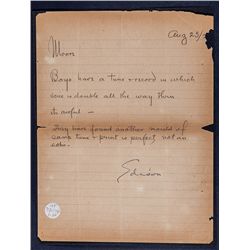 Aug 23/
Moon
Boys have a tune & record in which
tone is double all the way thru
its awful —
They have found another mould of
same tune & print is perfect not an
echo.
Edison